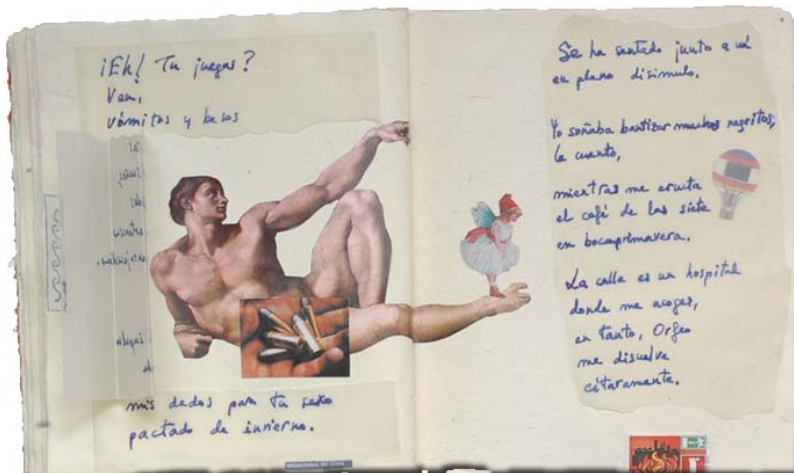 ¡Eh! Tu juegas?
Ven,
vómitos y besos
mis dedos para tu sexo
pactado de invierno.
Se ha sentado junto a mí
en plano disimulo.
Yo soñaba bautizar muchos negritos,
le cuento,
mientras me eructa
el café de las siete
en bocaprimavera.
La calle es un hospital
donde me acoges,
en tanto, Orfeo
me disuelve
citaramente.